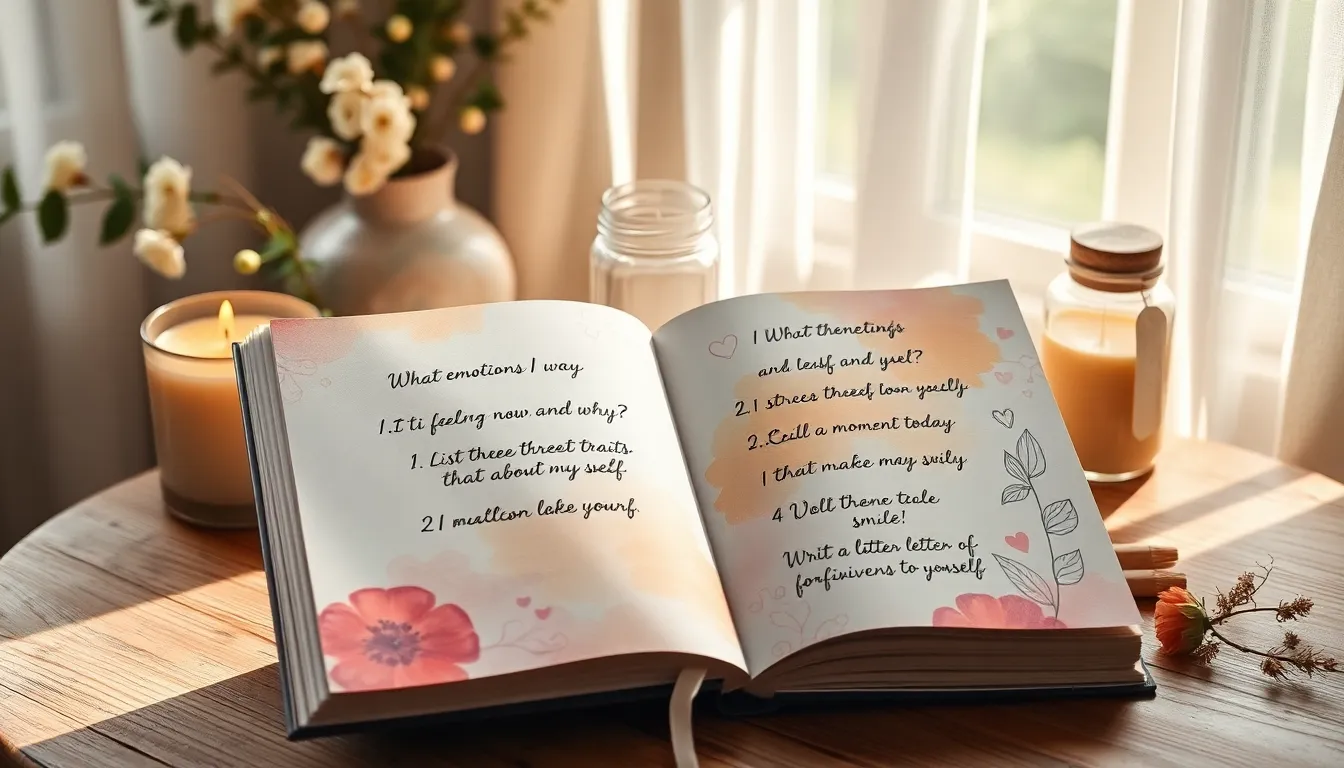 What emotions I way
1. I ti feeling now. and why?
1. List these threet traits.
that about my self.
2 I mutlcon leke yourf.
1 What thenetings
and leskf and yuel?
2. I strees theed, loon yoselly
2. Ceill a moment today
1 that make may suily
4 Woll thene ticle
smile!
Writ a litter letter of
forfiivens to yonself